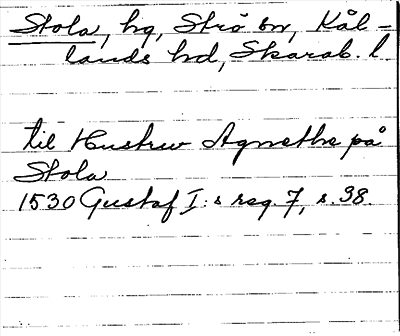 Stola, hg, Strö sn, Kål-
lands hd, Skarab. l
til Hustrw Agnethe på
Stola
1530 Gustaf I:s reg. 7, s. 38.